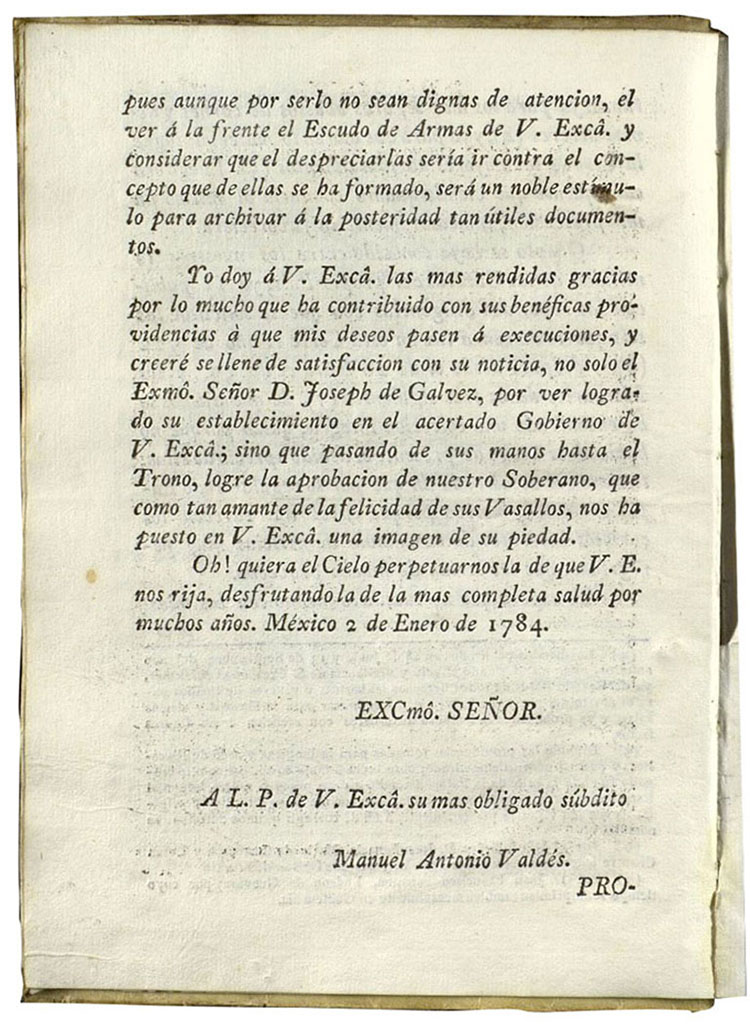 pues aunque por serlo no sean dignas de atencion, el
ver á la frente el Escudo de Armas de V. Excâ. y
considerar que el despreciarlas sería ir contra el con-
cepto que de ellas se ha formado, será un noble estímu-
lo para archivar á la posteridad tan útiles documen-
tos.
Yo doy á V. Excâ. las mas rendidas gracias
por lo mucho que ha contribuido con sus benéficas pro-
videncias à que mis deseos pasen á execuciones, y
creeré se llene de satisfaccion con su noticia, no solo el
Exmô. Señor D. Joseph de Galvez, por ver logra-
do su establecimiento en el acertado Gobierno de
V. Excâ.; sino que pasando de sus manos hasta el
Trono, logre la aprobacion de nuestro Soberano, que
como tan amante de la felicidad de sus Vasallos, nos ha
puesto en V. Excâ. una imagen de su piedad.
Oh! quiera el Cielo perpetuarnos la de que V. E.
nos rija, desfrutando la de la mas completa salud por
muchos años. México 2 de Enero de 1784.
EXCmô. SEÑOR.
A L. P. de V. Excâ. su mas obligado súbdito
Manuel Antonio Valdés.
PRO-